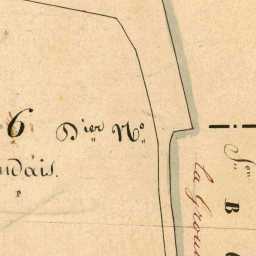 6 D.ier N.o
ndais.
P
S.on
B
la Grou